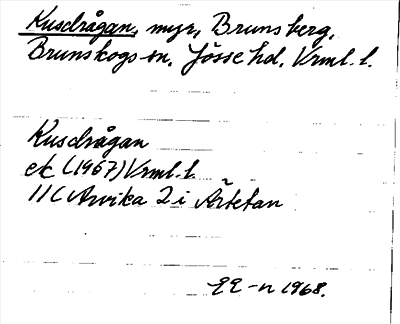 Kusdrågan, myr, Brunsberg,
Brunskogs sn. Jösse hd. Vrml. l.
Kusdrågan
ek (1967) Vrml. l.
11C Arvika 2 i Ärtetan
EE-n 1968.